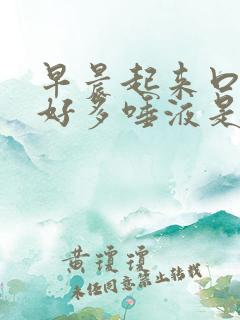 早晨起来口
好多唾液是
黄琼琼
未经同意禁止转载